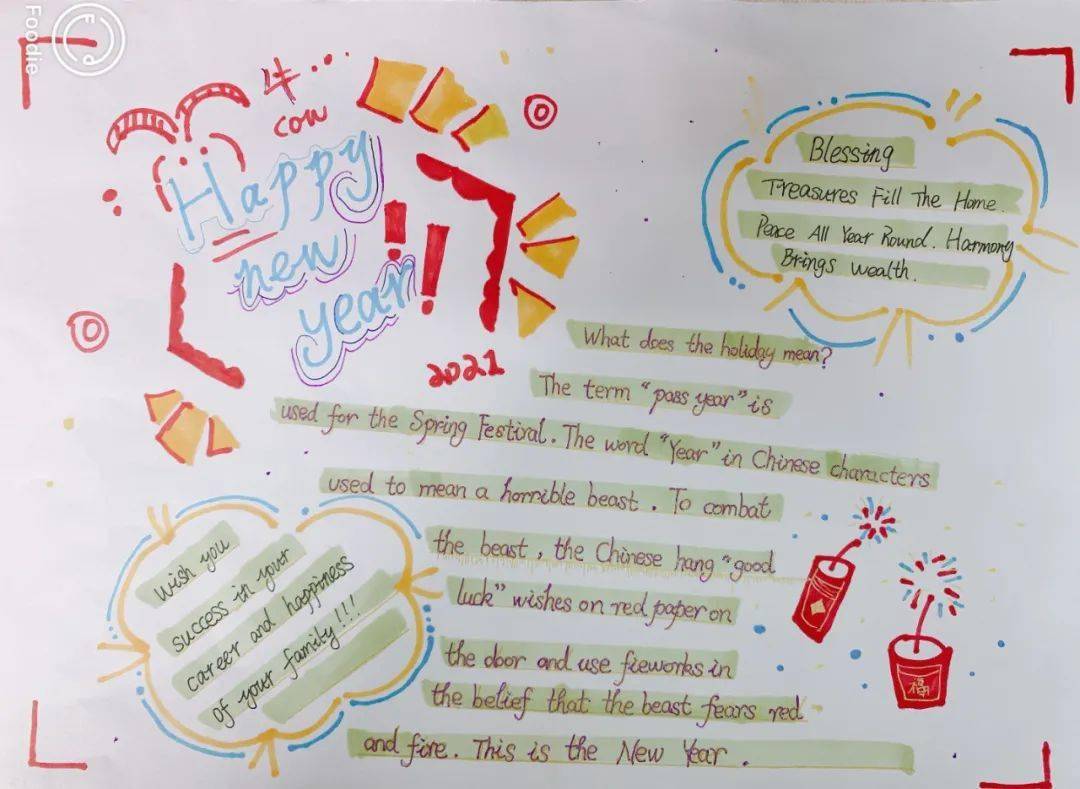 Foodie
牛...
cow
Happy
new
year!!
2021
Blessing
Treasures Fill The Home.
Peace All Year Round. Harmony
Brings wealth.
What does the holiday mean?
The term "pass year" is
used for the Spring Festival. The word "Year" in Chinese characters
used to mean a horrible beast. To combat
the beast, the Chinese hang "good
luck" wishes on red paper on
the door and use fieworks in
the belief that the beast fears red
and fire. This is the New Year.
Wish you
success in your
career and happiness
of your family!!!
福